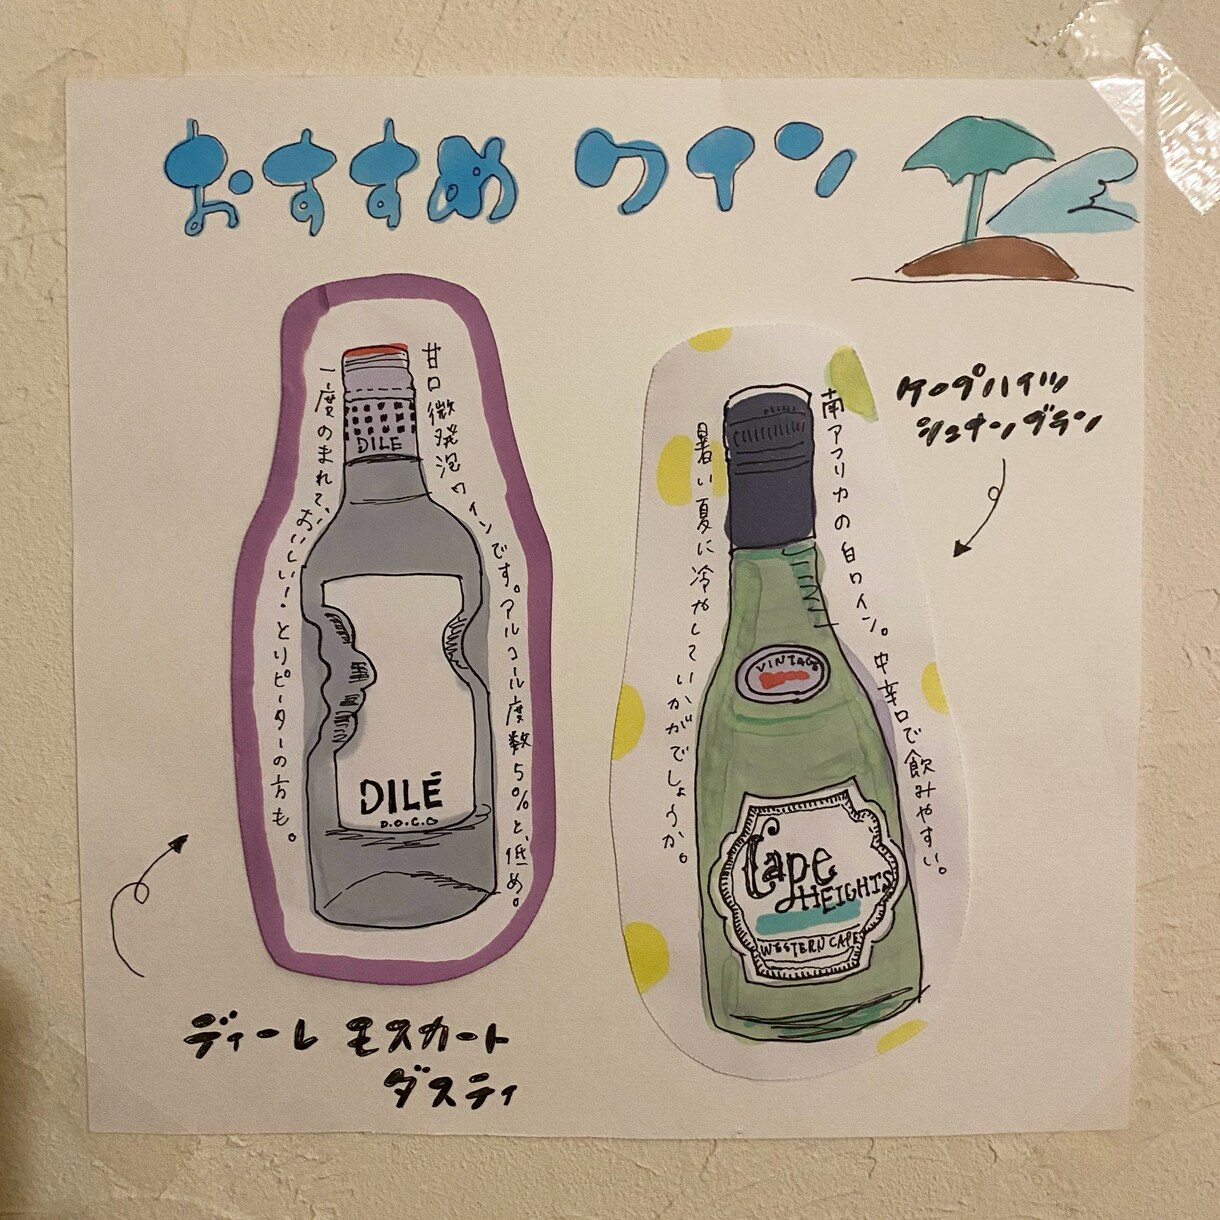 おすすめ ワイン
甘口微発泡ワインです。アルコール度数5%と、低め。
一度のまれて、おいしい!とリピーターの方も。
DILE
DILÉ
D.O.C.G
ディーレ モスカート
ダスティ
ケープハイツ
シュナンブラン
南アフリカの白ワイン。中辛口で飲みやすい。
暑い夏に冷やしていかがでしょうか。
VINTAGE
Cape
HEIGHTS
WESTERN CAPE